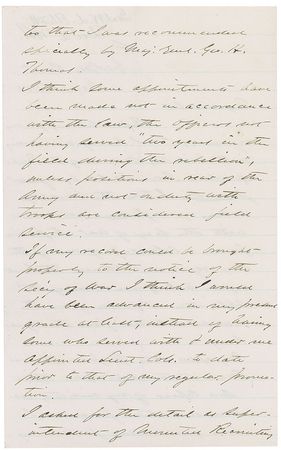 to that I was recommended
specially by Maj. Genl. Geo. H.
Thomas.
I think some appointments have
been made not in accordance
with the law, the officers not
having served "two years" in the
field during the rebellion",
unless positions in rear of the
Army and not on duty with
troops are considered field
service.
If my record could be brought
properly to the notice of the
Secy of War I think I would
have been advanced in my present
grade at least, instead of having
some who served with & under me
appointed Lieut. Cols. to date
prior to that of my regular promo-
tion.
I asked for the detail as Super-
intendent of Mounted Recruiting